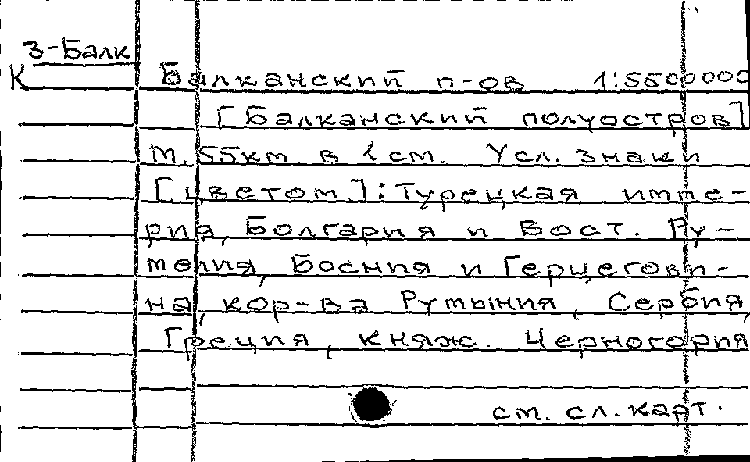 З-Балк
К Балканский п-ов 1:5500000
[Балканский полуостров]
М. 55км в 1 см. Усл. знаки
[цветом]: Турецкая импе-
рия, Болгария и Вост. Ру-
мелия, Босния и Герцегови-
на, кор-ва Румыния, Сербия,
Греция, княж. Черногория
см. сл. карт.